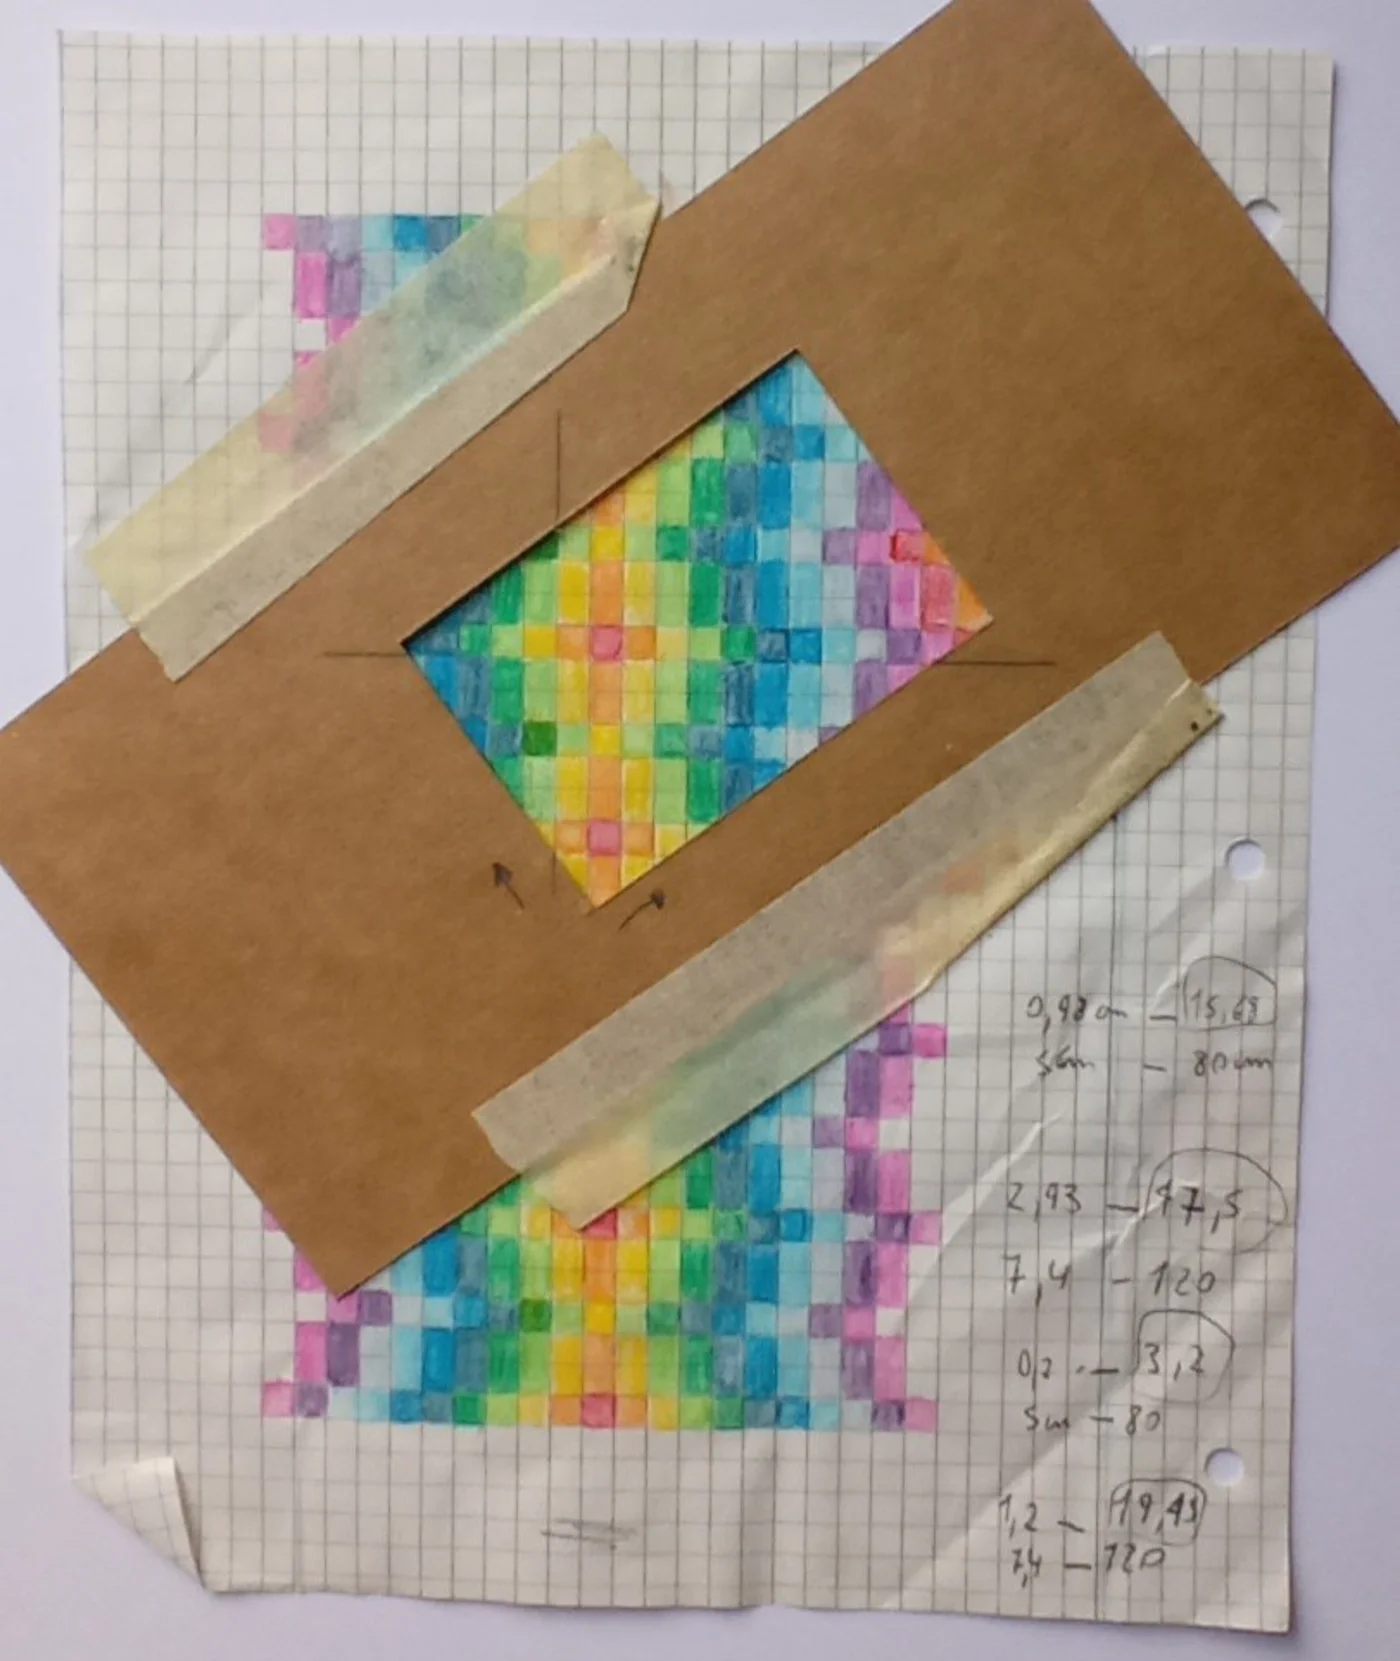 0,98 cm — 15,68
5cm — 80cm
2,93 — 47,5
7,4 — 120
0,2 — 3,2
5cm — 80
1,2 — 19,45
7,4 — 120